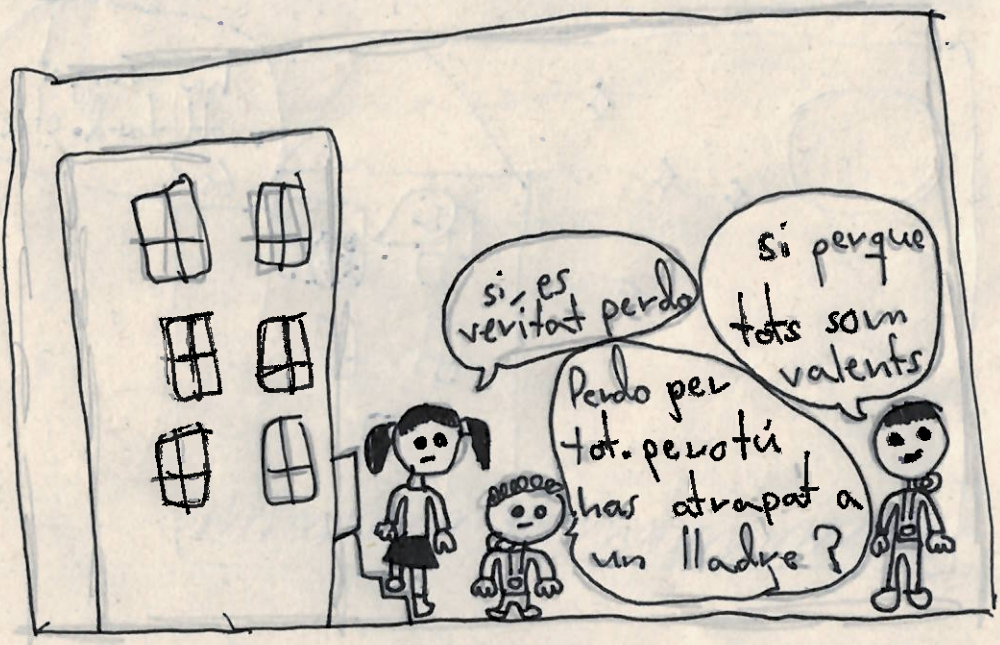 si, es
veritat perdo
Perdo per
tot. pero tú
has atrapat a
un lladre?
si perque
tots som
valents